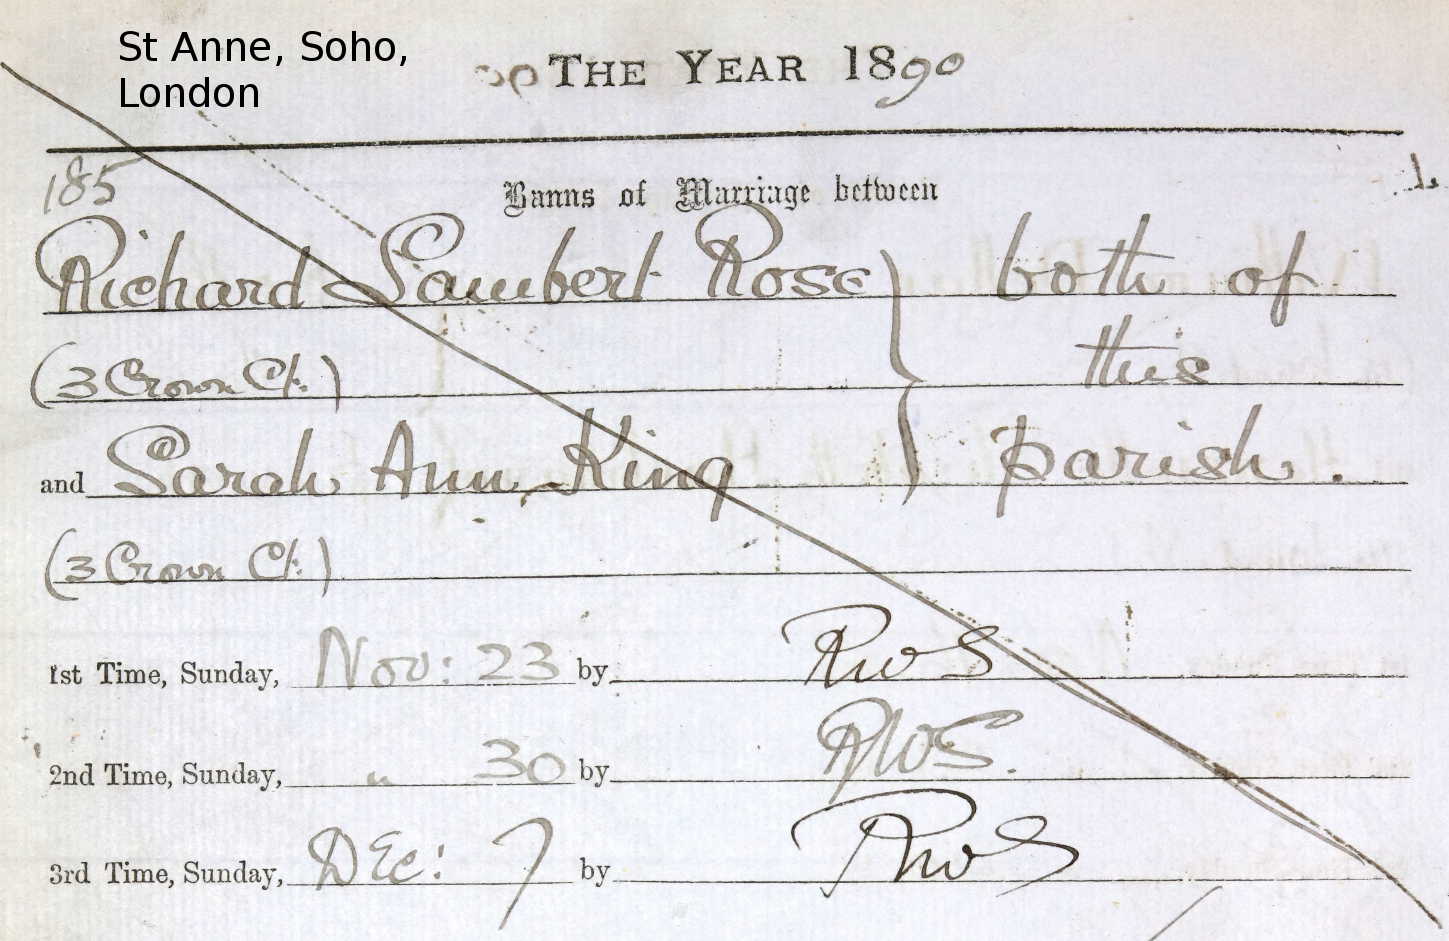 St Anne, Soho,
London
THE YEAR 1890
185
Banns of Marriage between
Richard Lambert Rose } both of
(3 Crown Ct.) this
and Sarah Ann King parish.
(3 Crown Ct.)
1st Time, Sunday, Nov: 23 by RWS
2nd Time, Sunday, " 30 by RWS.
3rd Time, Sunday, Dec: 7 by RWS